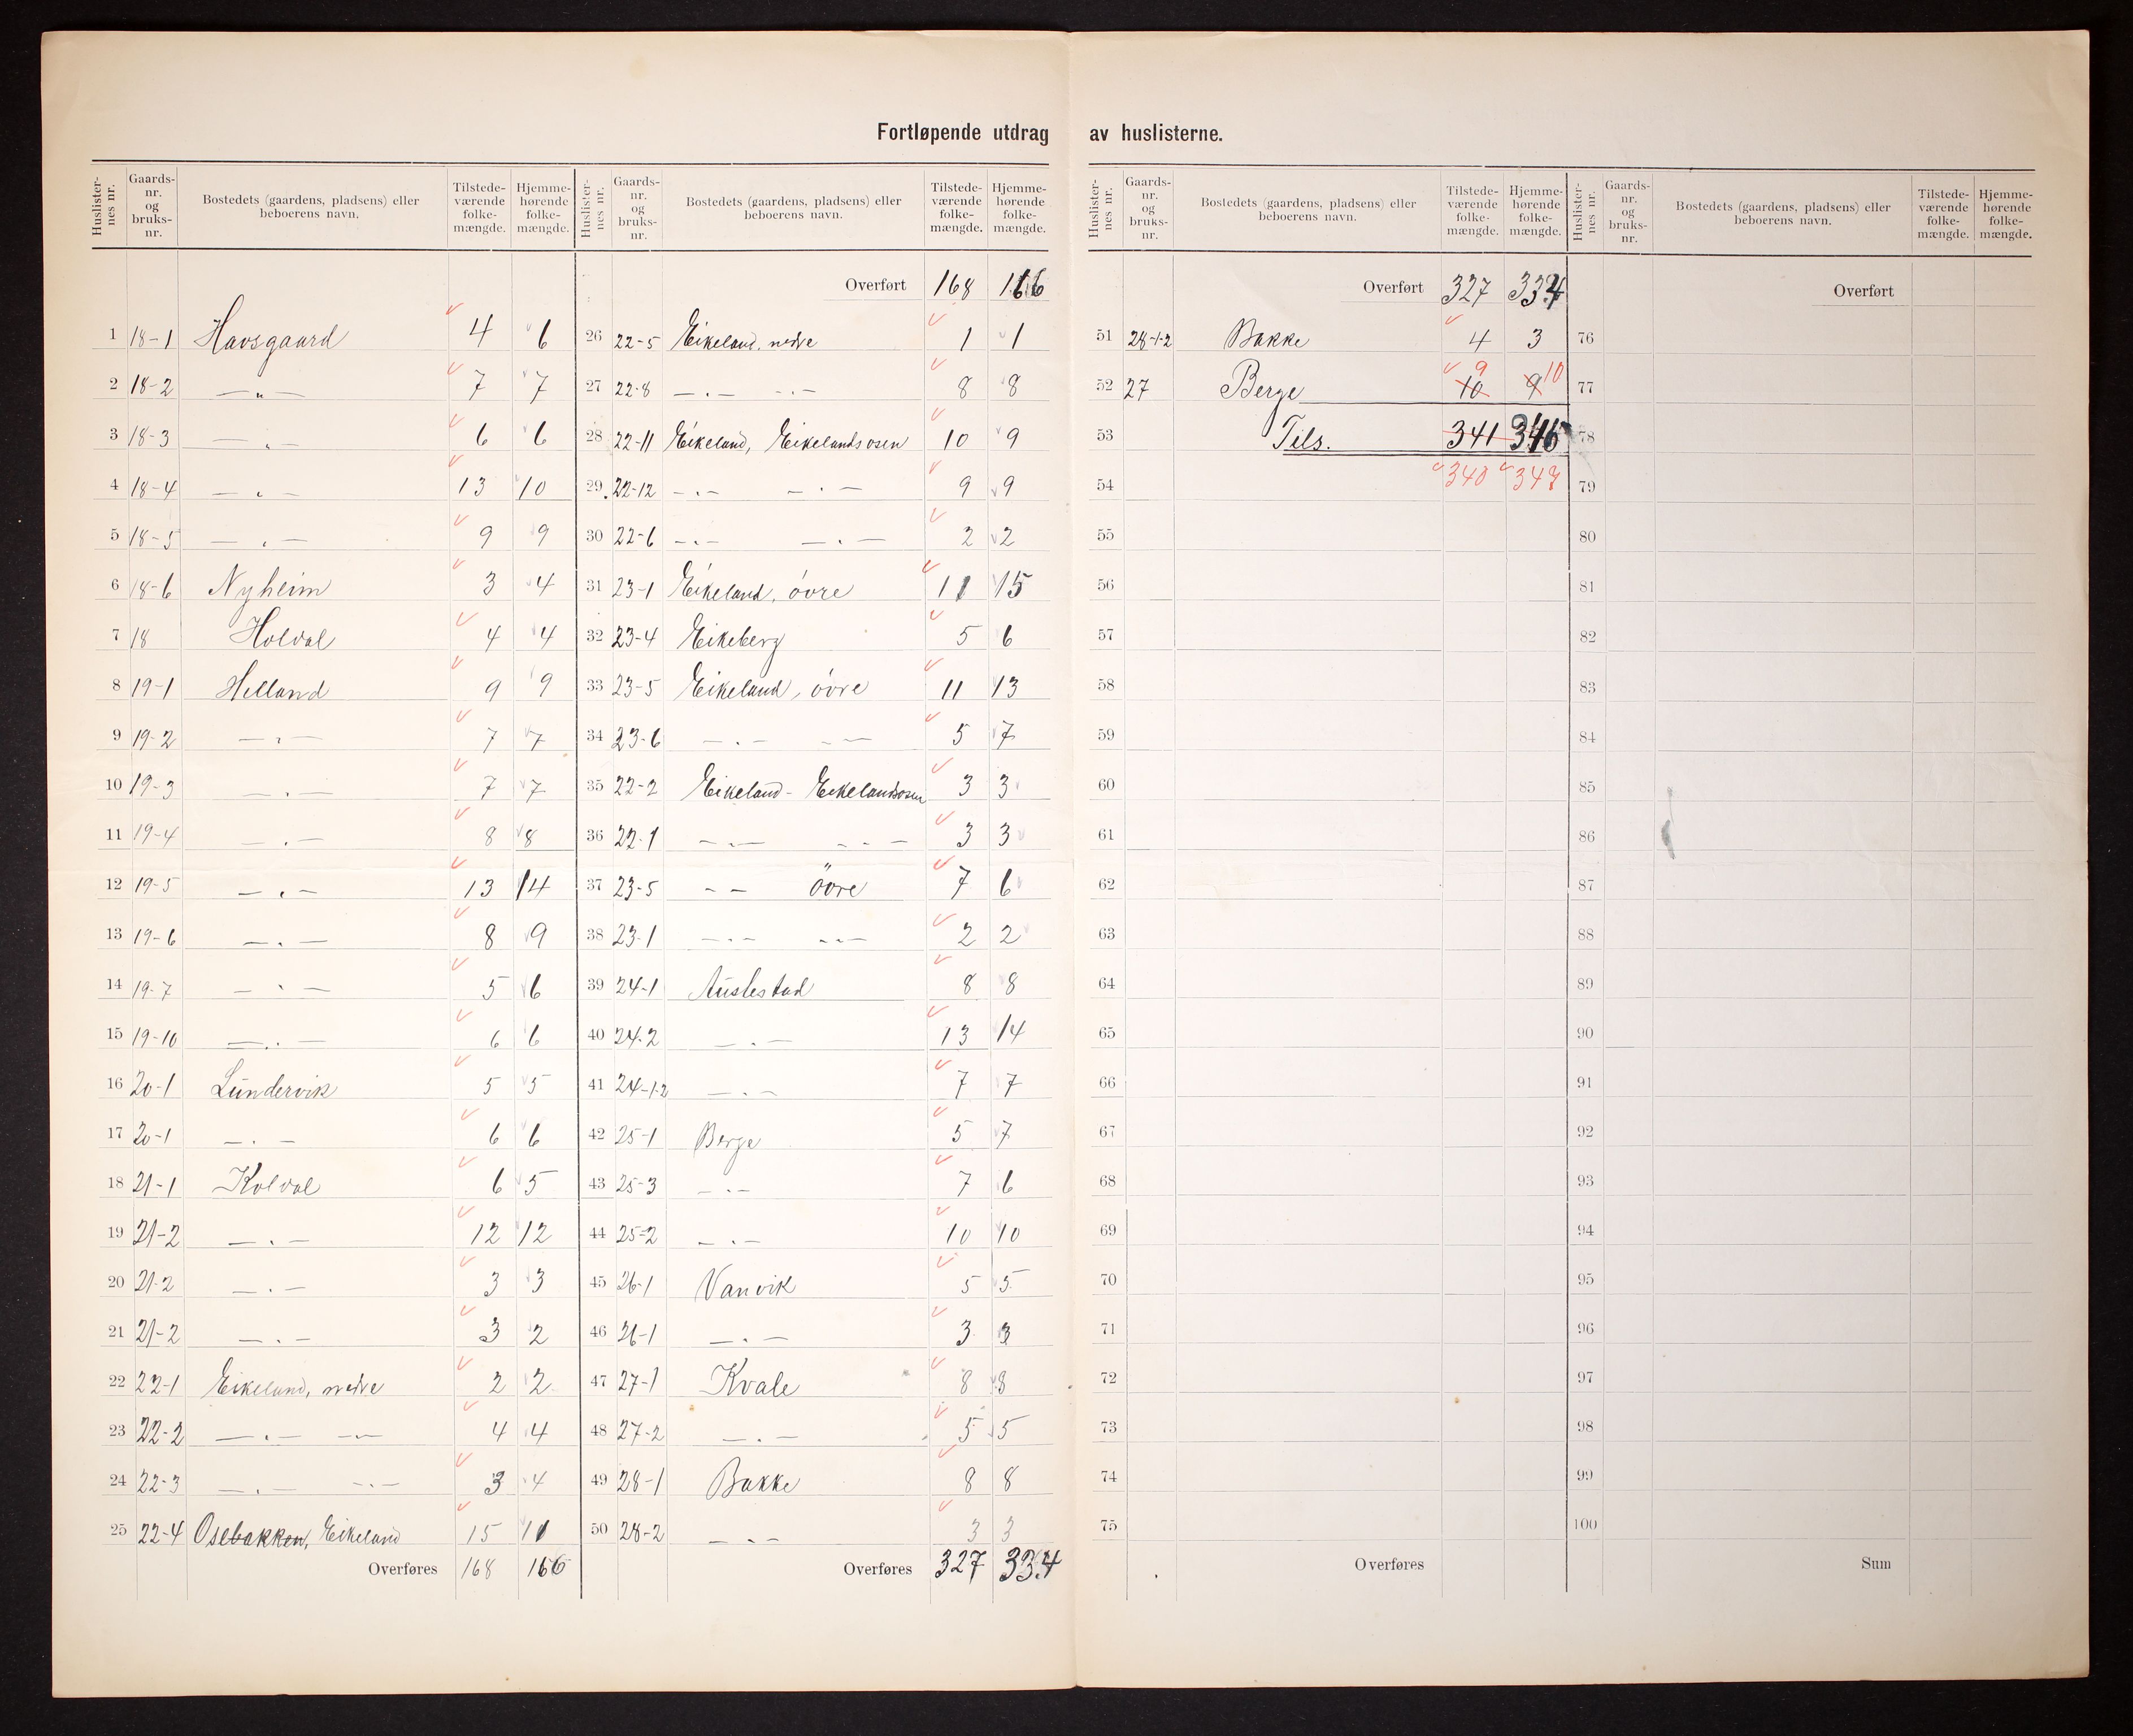 Fortløpende utdrag av huslisterne.
Huslister-nes nr. Gaards-nr. og bruks-nr. Bostedets (gaardens, pladsens) eller beboerens navn. Tilstede-værende folke-mængde. Hjemme-hørende folke-mængde.
1 18-1 Havsgaard 4 6
2 18-2 —„— 7 7
3 18-3 —„— 6 6
4 18-4 —„— 13 10
5 18-5 —„— 9 9
6 18-6 Nyheim 3 4
7 18 Holdal 4 4
8 19-1 Helland 9 9
9 19-2 —„— 7 7
10 19-3 —„— 7 7
11 19-4 —„— 8 8
12 19-5 —„— 13 14
13 19-6 —„— 8 9
14 19-7 —„— 5 6
15 19-10 —„— 6 6
16 20-1 Lündervik 5 5
17 20-1 —„— 6 6
18 21-1 Koldal 6 5
19 21-2 —„— 12 12
20 21-2 —„— 3 3
21 21-2 —„— 3 2
22 22-1 Eikeland, nedre 2 2
23 22-2 —„— —„— 4 4
24 22-3 —„— —„— 3 4
25 22-4 Osebakken, Eikeland 15 11
Overføres 168 166
Huslister-nes nr. Gaards-nr. og bruks-nr. Bostedets (gaardens, pladsens) eller beboerens navn. Tilstede-værende folke-mængde. Hjemme-hørende folke-mængde.
Overført 168 166
26 22-5 Eikeland, nedre 1 1
27 22-8 —„— —„— 8 8
28 22-11 Eikeland, Eikelandsosen 10 9
29 22-12 —„— —„— 9 9
30 22-6 —„— —„— 2 2
31 23-1 Eikeland, övre 11 15
32 23-4 Eikeberg 5 6
33 23-5 Eikeland, övre 11 13
34 23-6 —„— —„— 5 7
35 22-2 Eikeland - Eikelandsosen 3 3
36 22-1 —„— —„— 3 3
37 23-5 — — övre 7 6
38 23-1 —„— —„— 2 2
39 24-1 Austestad 8 8
40 24-2 —„— 13 14
41 24-1-2 —„— 7 7
42 25-1 Berge 5 7
43 25-3 —„— 7 6
44 25-2 —„— 10 10
45 26-1 Vanvik 5 5
46 26-1 —„— 3 3
47 27-1 Kvale 8 8
48 27-2 —„— 5 5
49 28-1 Bakke 8 8
50 28-2 —„— 3 3
Overføres 327 334
Huslister-nes nr. Gaards-nr. og bruks-nr. Bostedets (gaardens, pladsens) eller beboerens navn. Tilstede-værende folke-mængde. Hjemme-hørende folke-mængde.
Overført 327 334
51 28-1-2 Bakke 4 3
52 27 Berge 10 9 9 10
53 Tils. 341 346
54 340 347
55
56
57
58
59
60
61
62
63
64
65
66
67
68
69
70
71
72
73
74
75
Overføres
Huslister-nes nr. Gaards-nr. og bruks-nr. Bostedets (gaardens, pladsens) eller beboerens navn. Tilstede-værende folke-mængde. Hjemme-hørende folke-mængde.
Overført
76
77
78
79
80
81
82
83
84
85
86
87
88
89
90
91
92
93
94
95
96
97
98
99
100
Sum